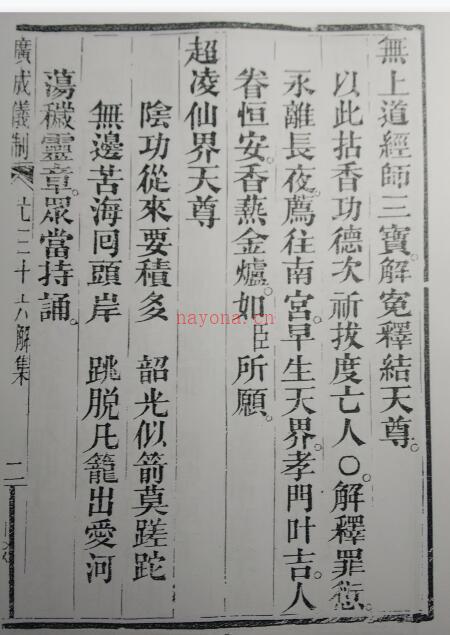 無上道經師三寶。解寃釋結天尊。
以此拈香功德次祈拔度亡人〇。解釋罪愆。
永離長夜。薦往南宮。早生天界。孝門叶吉。人
眷恒安。香爇金爐。如臣所願。
超凌仙界天尊
陰功從來要積多 韶光似箭莫蹉跎
無邊苦海囘頭岸 跳脫凡籠出愛河
蕩穢靈章。眾當持誦。
廣成儀制 三十六解集 二
hayona.cn